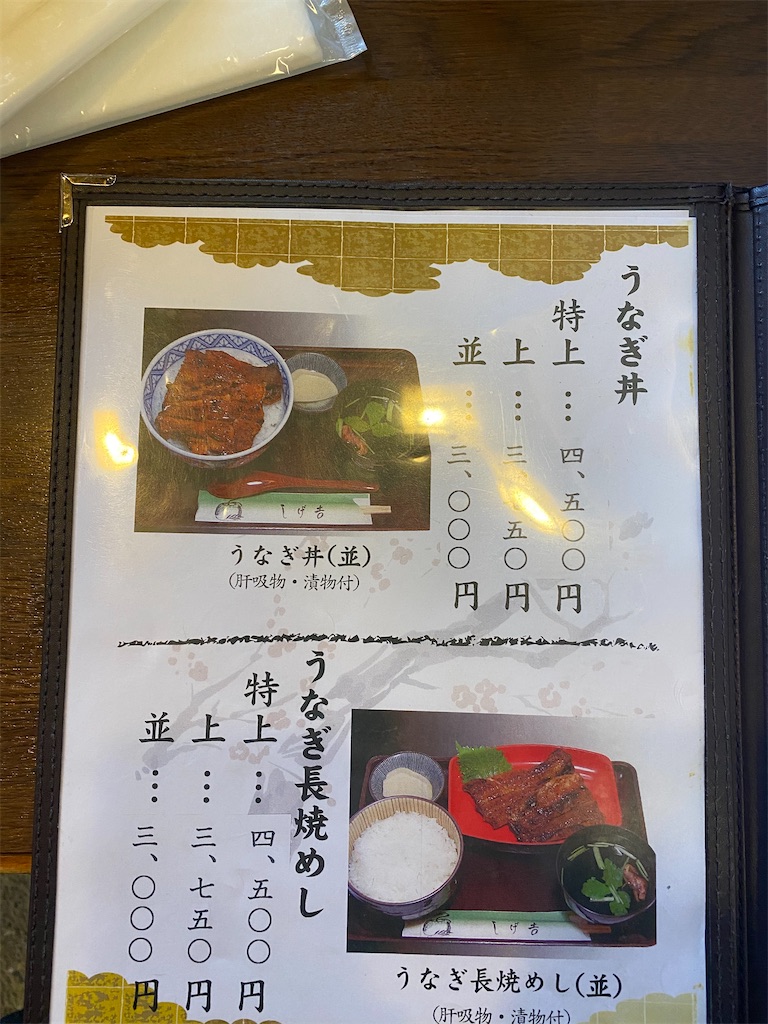 うなぎ丼
特上…四、五〇〇円
上…三、七五〇円
並…三、〇〇〇円
しげ吉
うなぎ丼(並)
(肝吸物・漬物付)
うなぎ長焼めし
特上…四、五〇〇円
上…三、七五〇円
並…三、〇〇〇円
しげ吉
うなぎ長焼めし(並)
(肝吸物・漬物付)